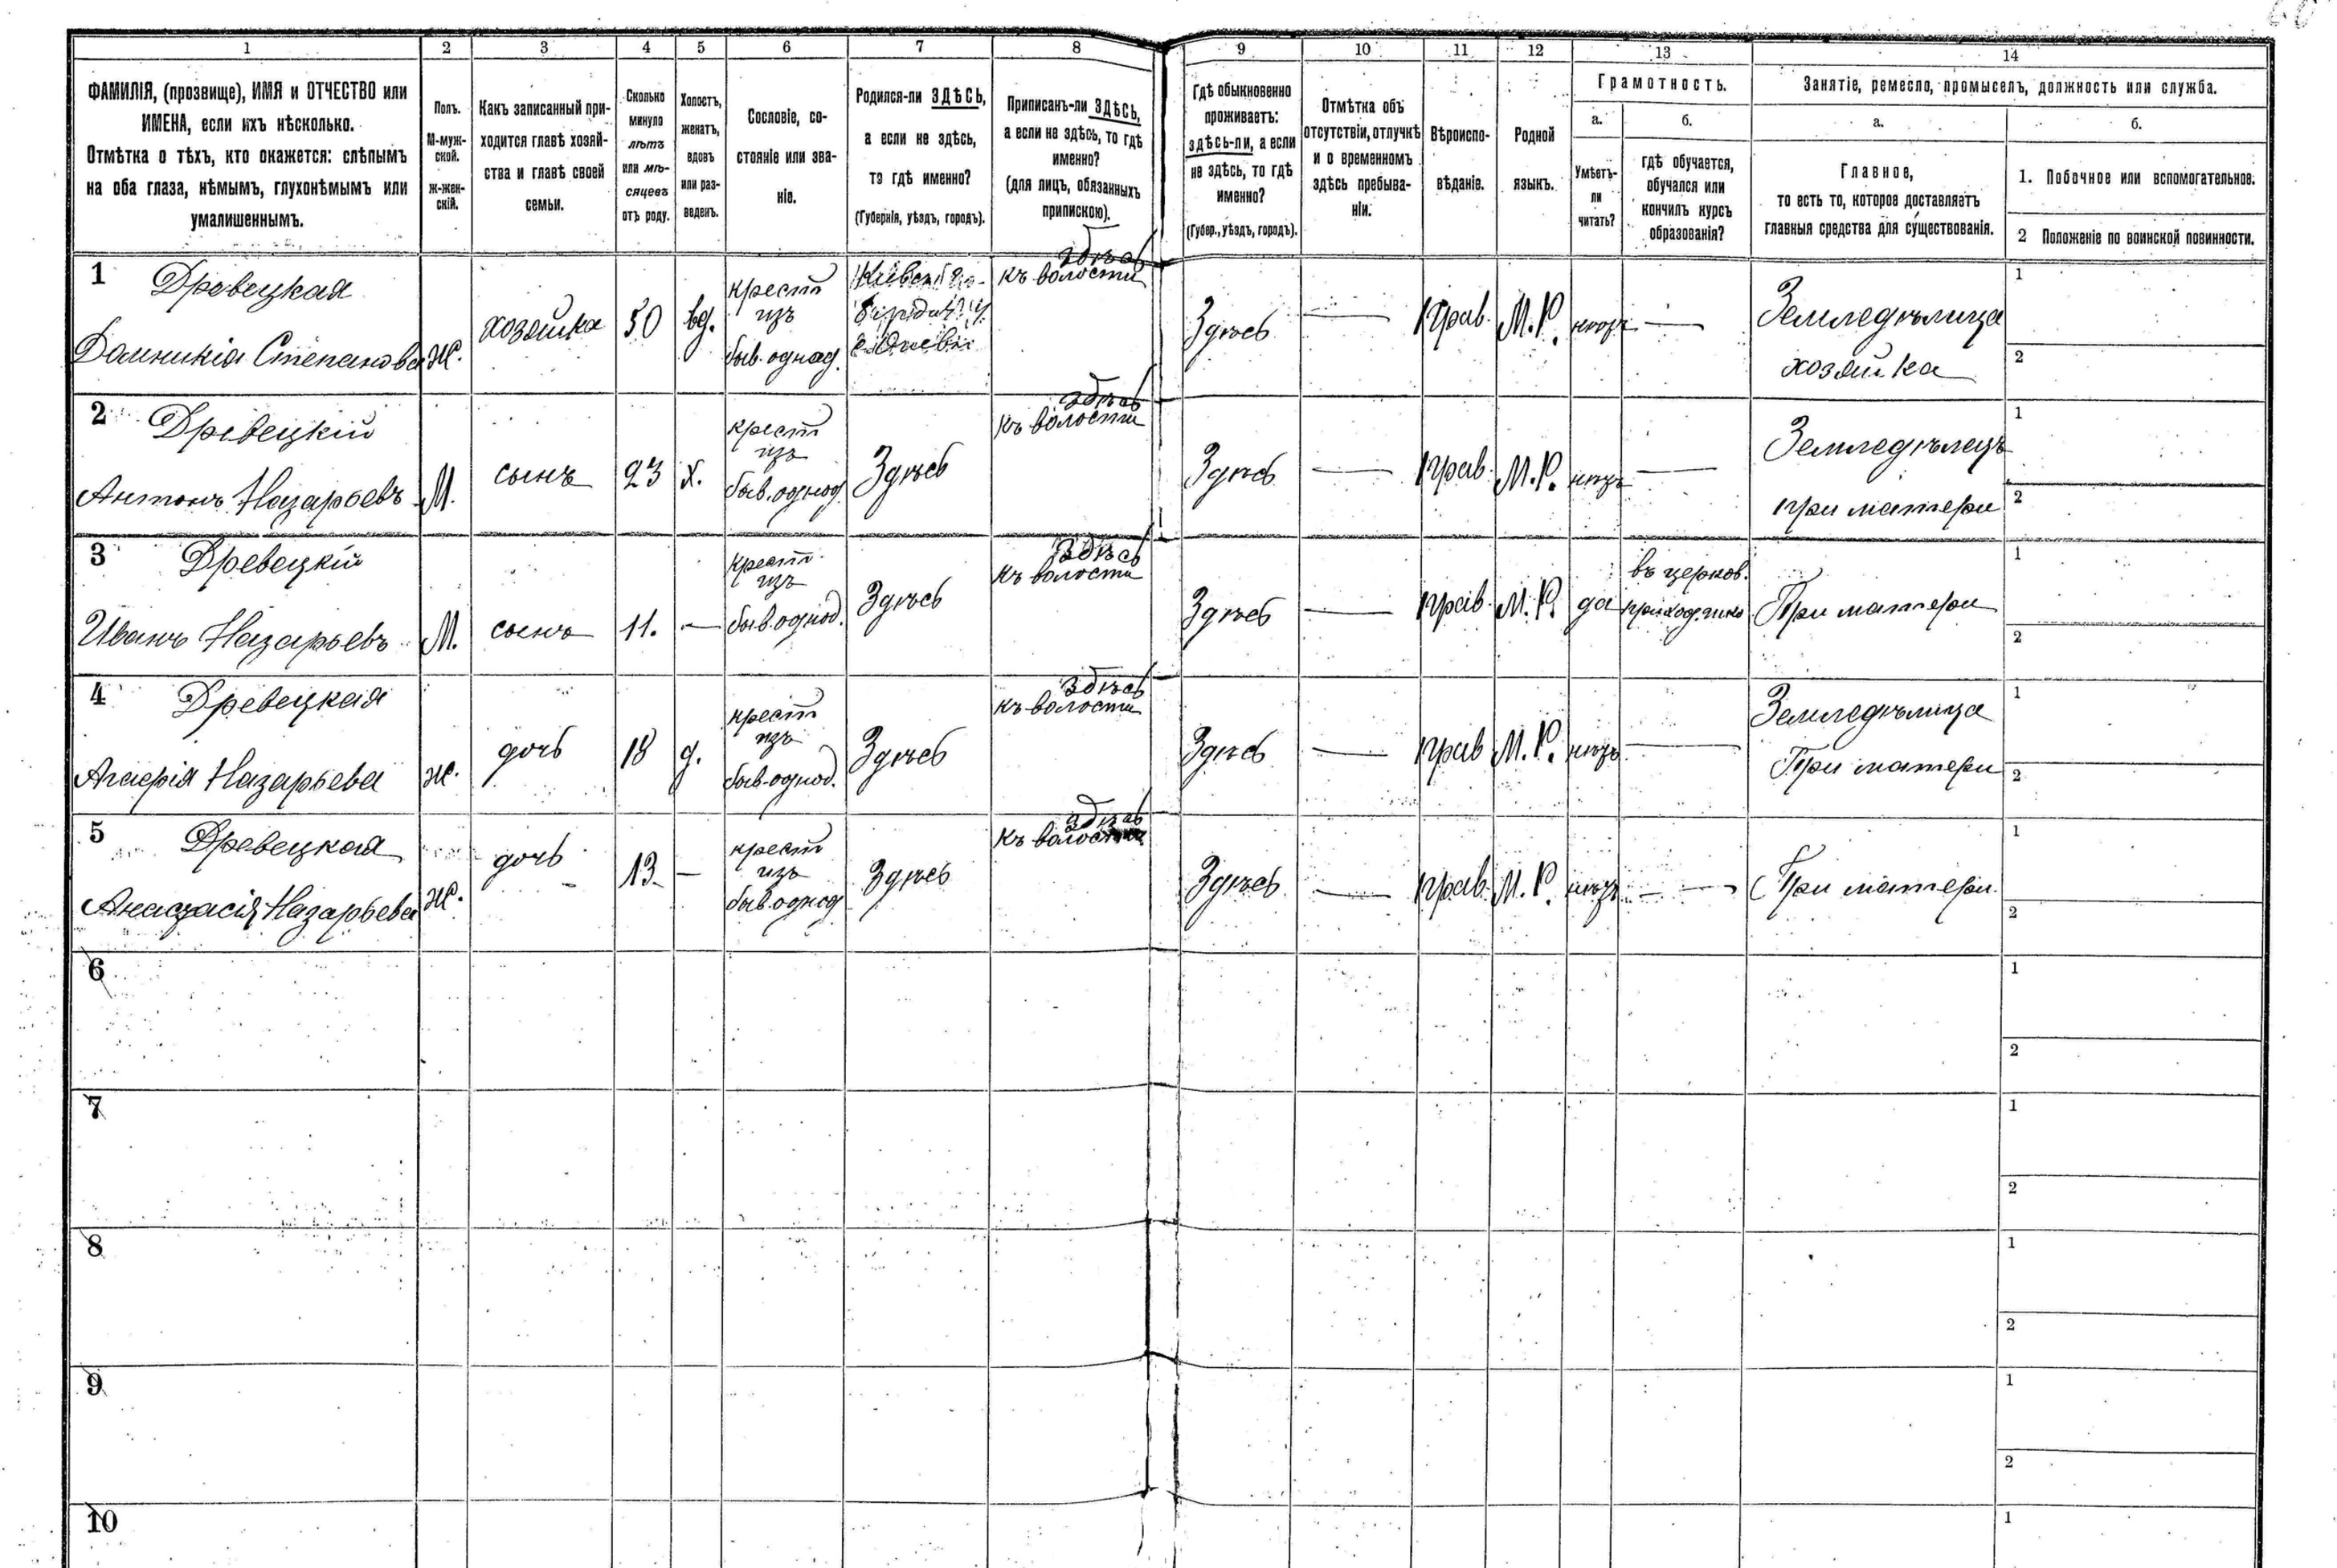 1 2 3 4 5 6 7 8 9 10 11 12 13 14
ФАМИЛІЯ, (прозвище), ИМЯ и ОТЧЕСТВО или
ИМЕНА, если ихъ нѣсколько.
Отмѣтка о тѣхъ, кто окажется: слѣпымъ
на оба глаза, нѣмымъ, глухонѣмымъ или
умалишеннымъ.
Полъ.
М-муж-
ской.
ж-жен-
скій.
Какъ записанный при-
ходится главѣ хозяй-
ства и главѣ своей
семьи.
Сколько
минуло
лѣтъ
или мѣ-
сяцевъ
отъ роду.
Холостъ,
женатъ,
вдовъ
или раз-
веденъ.
Сословіе, со-
стояніе или зва-
ніе.
Родился-ли ЗДѢСЬ,
а если не здѣсь,
то гдѣ именно?
(Губернія, уѣздъ, городъ).
Приписанъ-ли ЗДѢСЬ,
а если не здѣсь, то гдѣ
именно?
(для лицъ, обязанныхъ
припискою).
Гдѣ обыкновенно
проживаетъ:
здѣсь-ли, а если
не здѣсь, то гдѣ
именно?
(Губер., уѣздъ, городъ).
Отмѣтка объ
отсутствіи, отлучкѣ
и о временномъ
здѣсь пребыва-
ніи.
Вѣроиспо-
вѣданіе.
Родной
языкъ.
Грамотность.
а.
Умѣетъ-
ли
читать?
б.
гдѣ обучается,
обучался или
кончилъ курсъ
образованія?
Занятіе, ремесло, промыселъ, должность или служба.
а.
Главное,
то есть то, которое доставляетъ
главныя средства для существованія.
б.
1. Побочное или вспомогательное.
2 Положеніе по воинской повинности.
1 Древецкая
Домникія Степанова
ж.
хозяйка
50
вд.
крест
изъ
быв. однод.
здѣсь
къ волости
Здѣсь
—
прав.
М. Р.
—
Земледѣлица
хозяйка
1
2
2 Древецкій
Антонъ Назарьевъ
М.
сынъ
23
х.
крест
изъ
быв. однод
Здѣсь
здѣсь
къ волости
Здѣсь
—
прав.
М. Р.
—
Земледѣлецъ
при матери
1
2
3 Древецкій
Иванъ Назарьевъ
М.
сынъ
11.
—
крест
изъ
быв. однод.
Здѣсь
здѣсь
къ волости
Здѣсь
—
прав.
М. Р.
да
въ церков.
При матери
1
2
4 Древецкая
Агафія Назарьева
ж.
дочь
18
д.
крест
изъ
быв. однод.
Здѣсь
здѣсь
къ волости
Здѣсь
—
прав
М. Р.
—
Земледѣлица
При матери
1
2
5 Древецкая
Анастасія Назарьева
ж.
дочь
13
—
крест
изъ
быв. однод
Здѣсь
здѣсь
къ волости
Здѣсь
—
прав.
М. Р.
—
При матери.
1
2
6
1
2
7
1
2
8
1
2
9
1
2
10
1